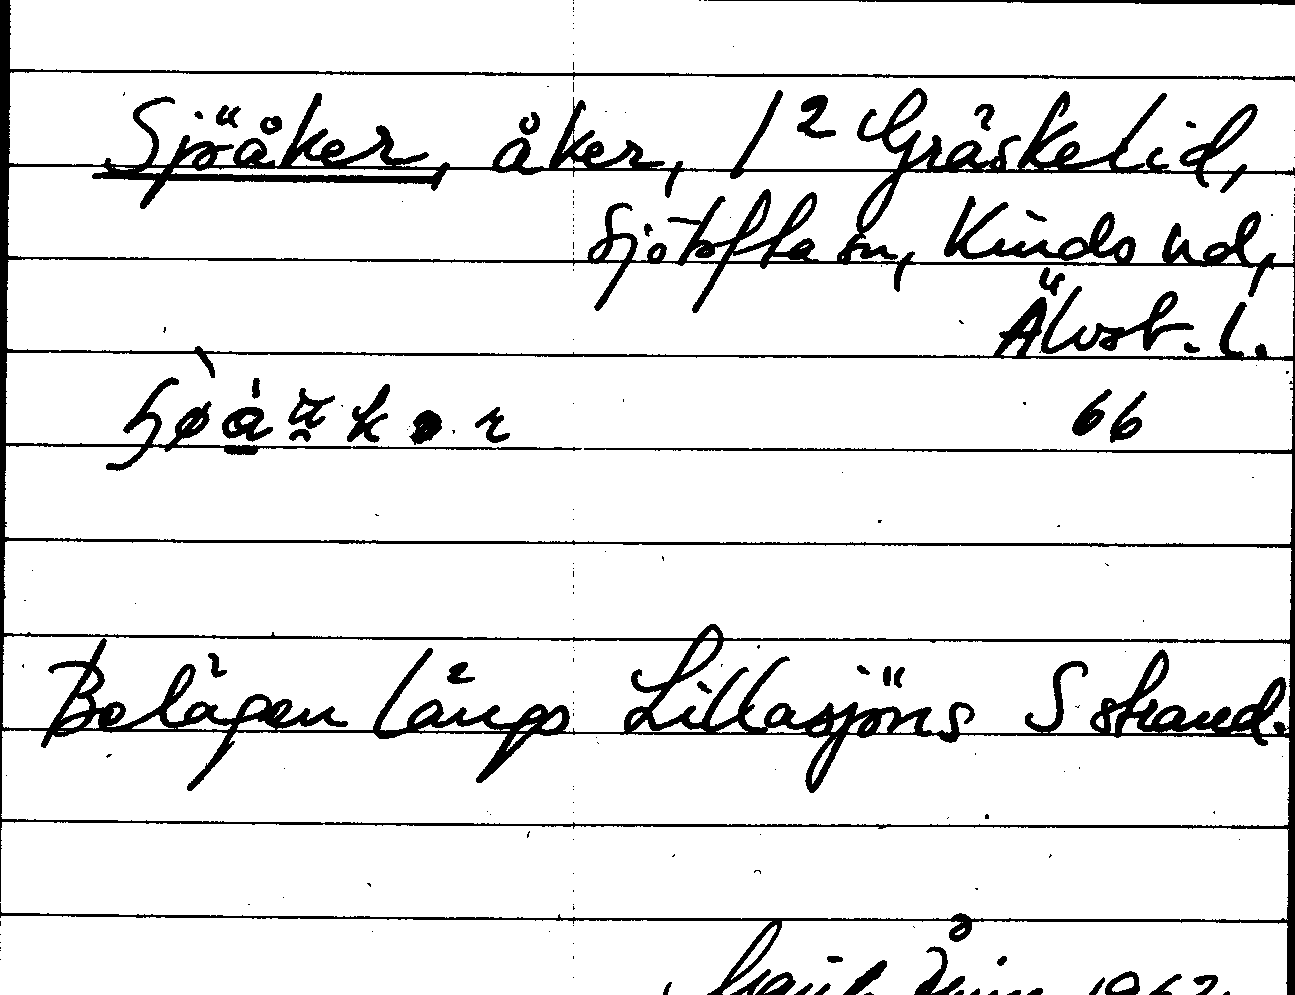 Sjöåker, åker, 1² Gräskelid,
Sjötofta sn, Kinds hd,
Älvsb. l.
66
Belägen längs Lillasjöns S strand.